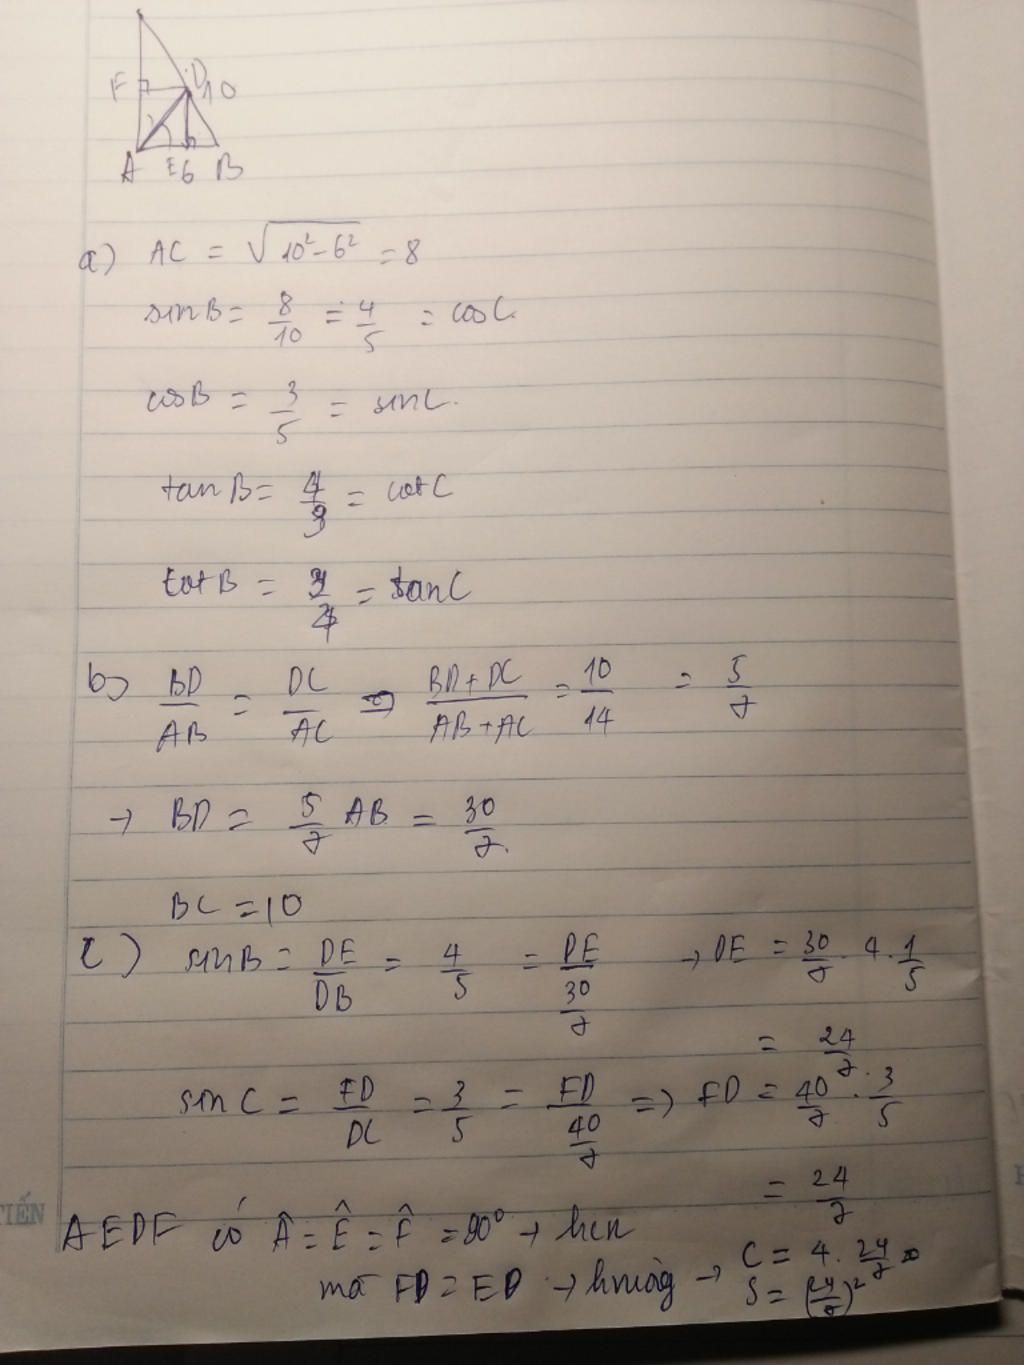 F D 10
A E 6 B
a) AC = √(10² - 6²) = 8
sinB = 8/10 = 4/5 = cosC
cosB = 3/5 = sinC.
tanB = 4/3 = cotC
cotB = 3/4 = tanC
b) BD/AB = DC/AC => (BD+DC)/(AB+AC) = 10/14 = 5/7
→ BD = 5/7 AB = 30/7.
BC = 10
c) sinB = DE/DB = 4/5 = DE/(30/7) → DE = 30/7 . 4 . 1/5
= 24/7.
sinC = FD/DC = 3/5 = FD/(40/7) => FD = 40/7 . 3/5
= 24/7
TIẾN
AEDF có Â = Ê = F̂ = 90° → hcn
mà FD = ED → hvuông → C = 4. 24/7
S = (24/7)²